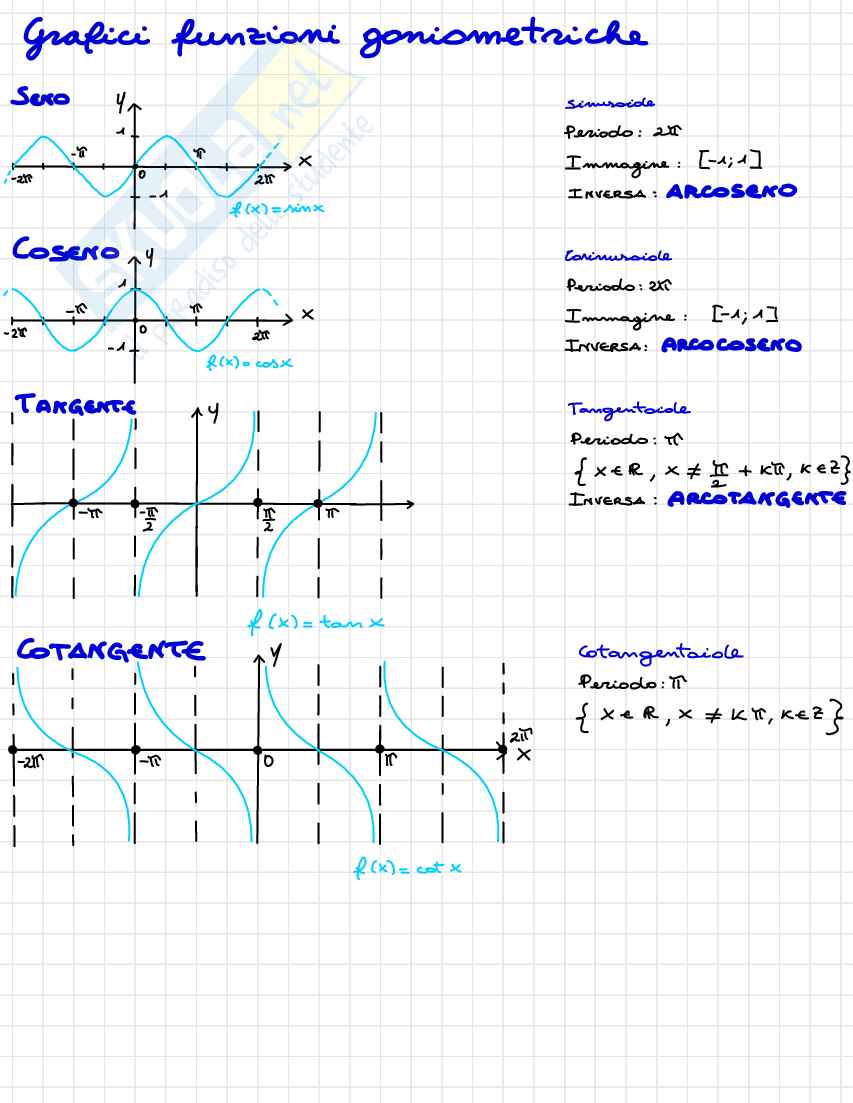 Grafici funzioni goniometriche
SENO
y
1
-π
π
x
-2π
0
2π
-1
f(x)=sin x
sinusoide
Periodo: 2π
Immagine: [-1; 1]
INVERSA: ARCOSENO
COSENO
y
1
-π
π
x
-2π
0
2π
-1
f(x)=cos x
Cosinusoide
Periodo: 2π
Immagine: [-1; 1]
INVERSA: ARCOCOSENO
TANGENTE
y
-π
-π/2
π/2
π
f(x)=tan x
Tangentoide
Periodo: π
{ x ∈ R, x ≠ π/2 + kπ, k ∈ Z}
INVERSA: ARCOTANGENTE
COTANGENTE
y
2π
-2π
-π
0
π
x
f(x)=cot x
Cotangentoide
Periodo: π
{ x ∈ R, x ≠ kπ, k ∈ Z }
skuola.net
paradiso dello studente